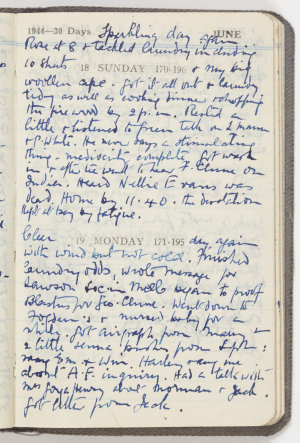 1944—30 Days Sparkling day again JUNE
Rose at 8 & tackled laundry including
10 sheets 18 SUNDAY 170-196 & my big
woollen cape. Got it all out & laundry
tidy as well as cooking dinner & chopping
the fire wood by 2 p.m. Rested a
little & listened to Green talk on
& White. He never says a stimulating
thing - mediocrity complete. Got wash
in & after tea went to hear F. Clune on
India. Heard Nellie Evans was
dead. Home by 11.40. the
kept at bay by fatigue.
Clear 19 MONDAY 171-195 day again
with wind but not cold. Finished
laundry odds, wrote message for
Lawson Mells began to proof
for Geo. Clune. Went down to
& nursed baby for a
while. Got airgraph from in
2 little from Sept:
rang & Win. Harley & rang me
about A.F. inquiry. Had a talk with
Mrs about Norman & Jack.
Got letter from Jack.